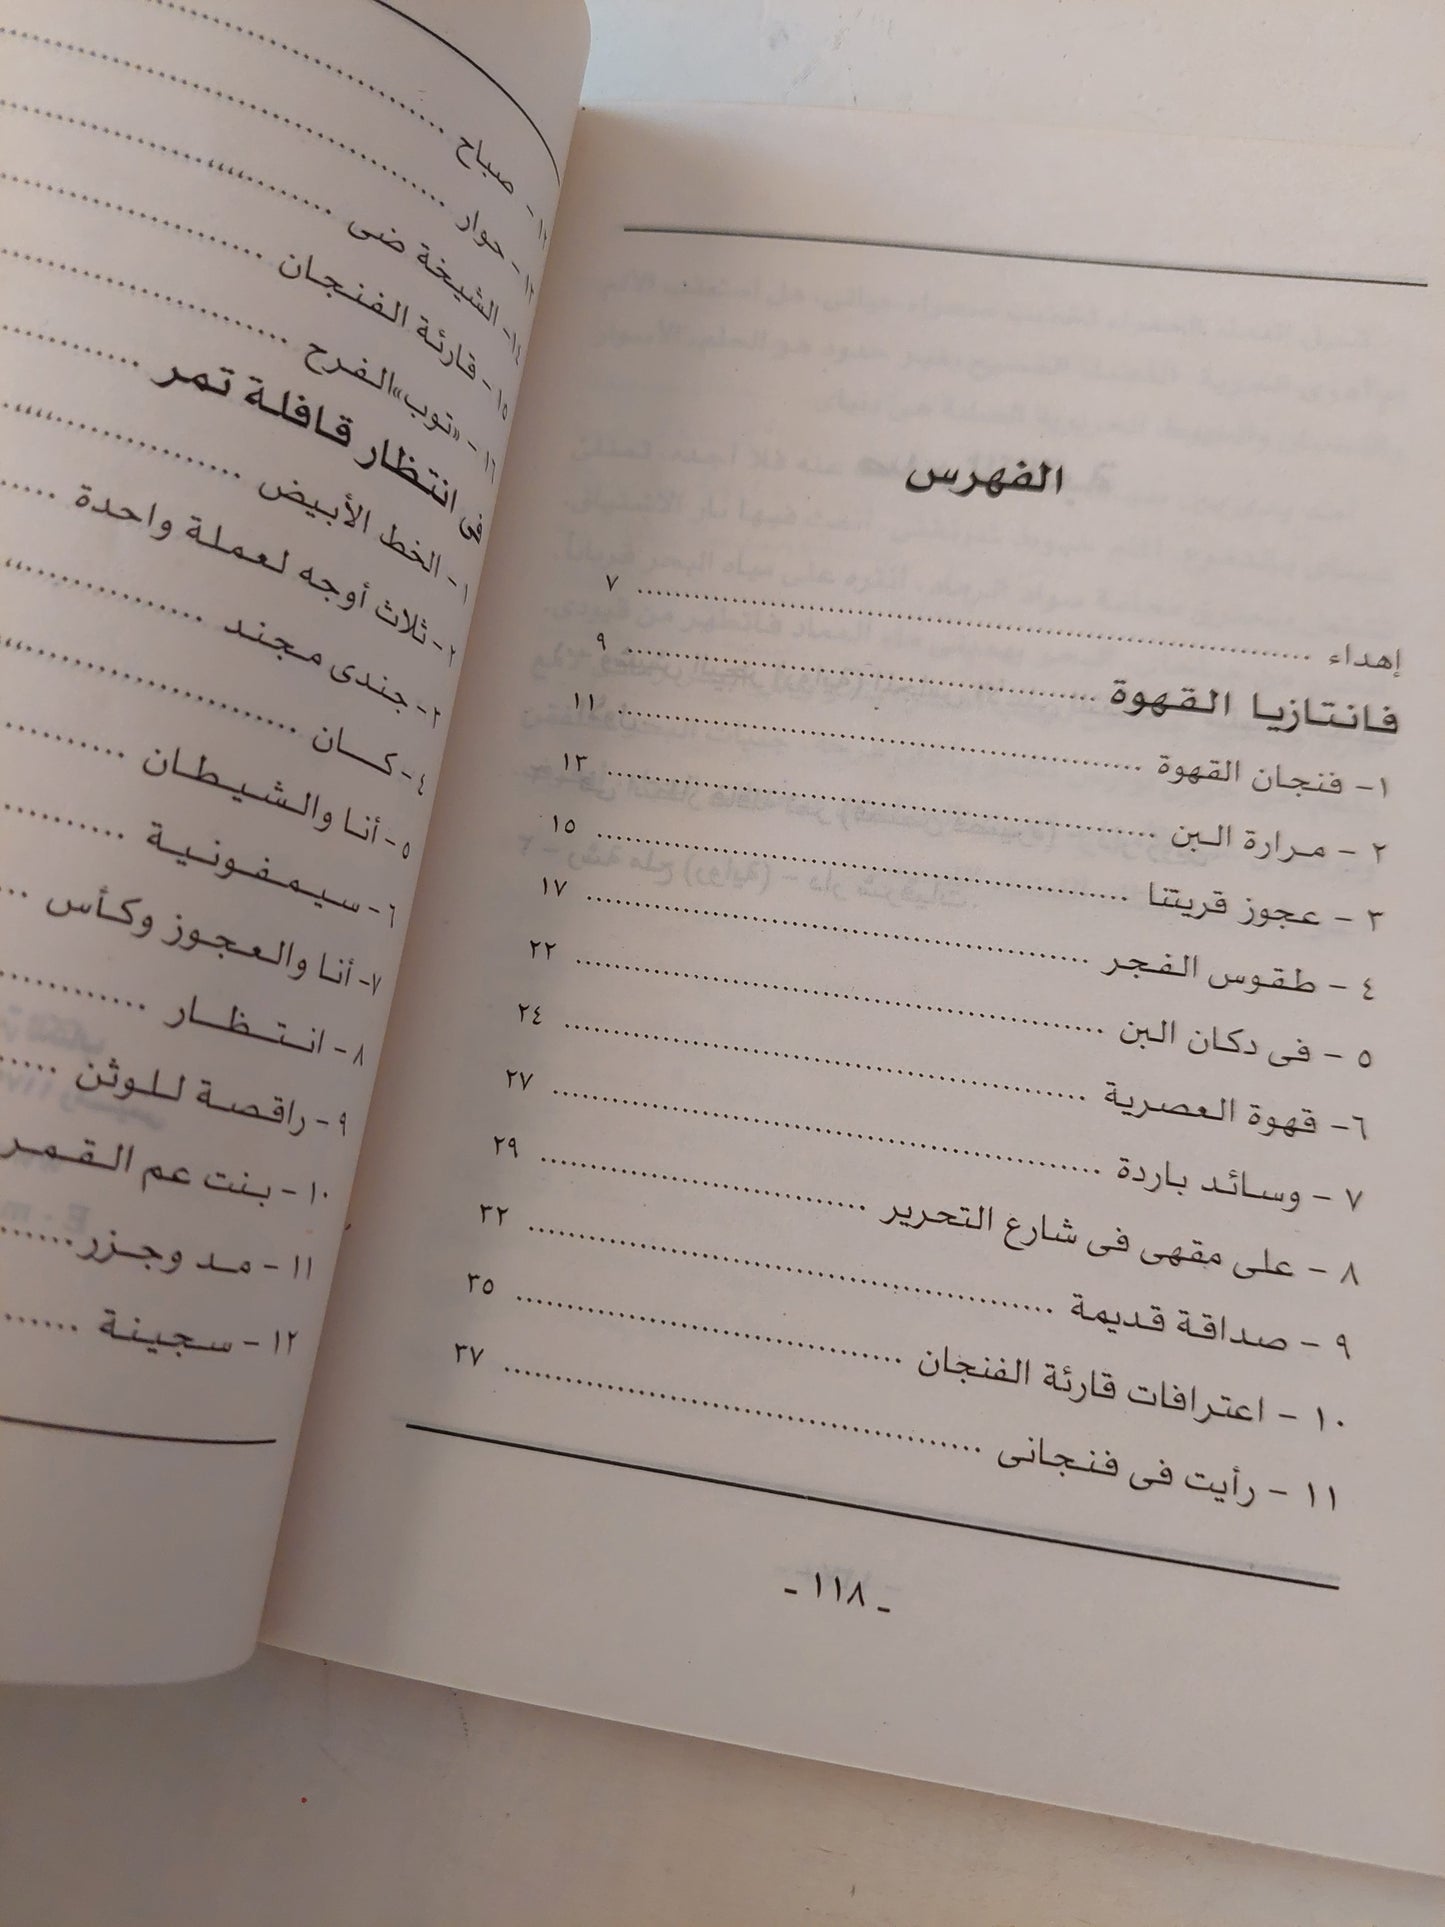 الفهرس
إهداء ................ ٧
فانتازيا القهوة ................ ٩
١- فنجان القهوة ................ ١١
٢ - مرارة البن ................ ١٣
٣ - عجوز قريتنا ................ ١٥
٤ - طقوس الفجر ................ ١٧
٥ - فى دكان البن ................ ٢٢
٦- قهوة العصرية ................ ٢٤
٧ - وسائد باردة ................ ٢٧
٨ - على مقهى فى شارع التحرير ................ ٢٩
٩ - صداقة قديمة ................ ٣٢
١٠ - اعترافات قارئة الفنجان ................ ٣٥
١١ - رأيت فى فنجانى ................ ٣٧
ـ ١١٨ ـ
١٢- صباح ................
١٣- حوار ................
١٤- الشيخة ضى ................
١٥- قارئة الفنجان ................
١٦- «توب» الفرح ................
فى انتظار قافلة تمر ................
١- الخط الأبيض ................
٢- ثلاث أوجه لعملة واحدة ................
٣- جندى مجند ................
٤- كان ................
٥- أنا والشيطان ................
٦- سيمفونية ................
٧- أنا والعجوز وكأس ................
٨- انتظار ................
٩- راقصة للوثن ................
١٠- بنت عم القمر
١١- مد وجزر ................
١٢- سجينة ................